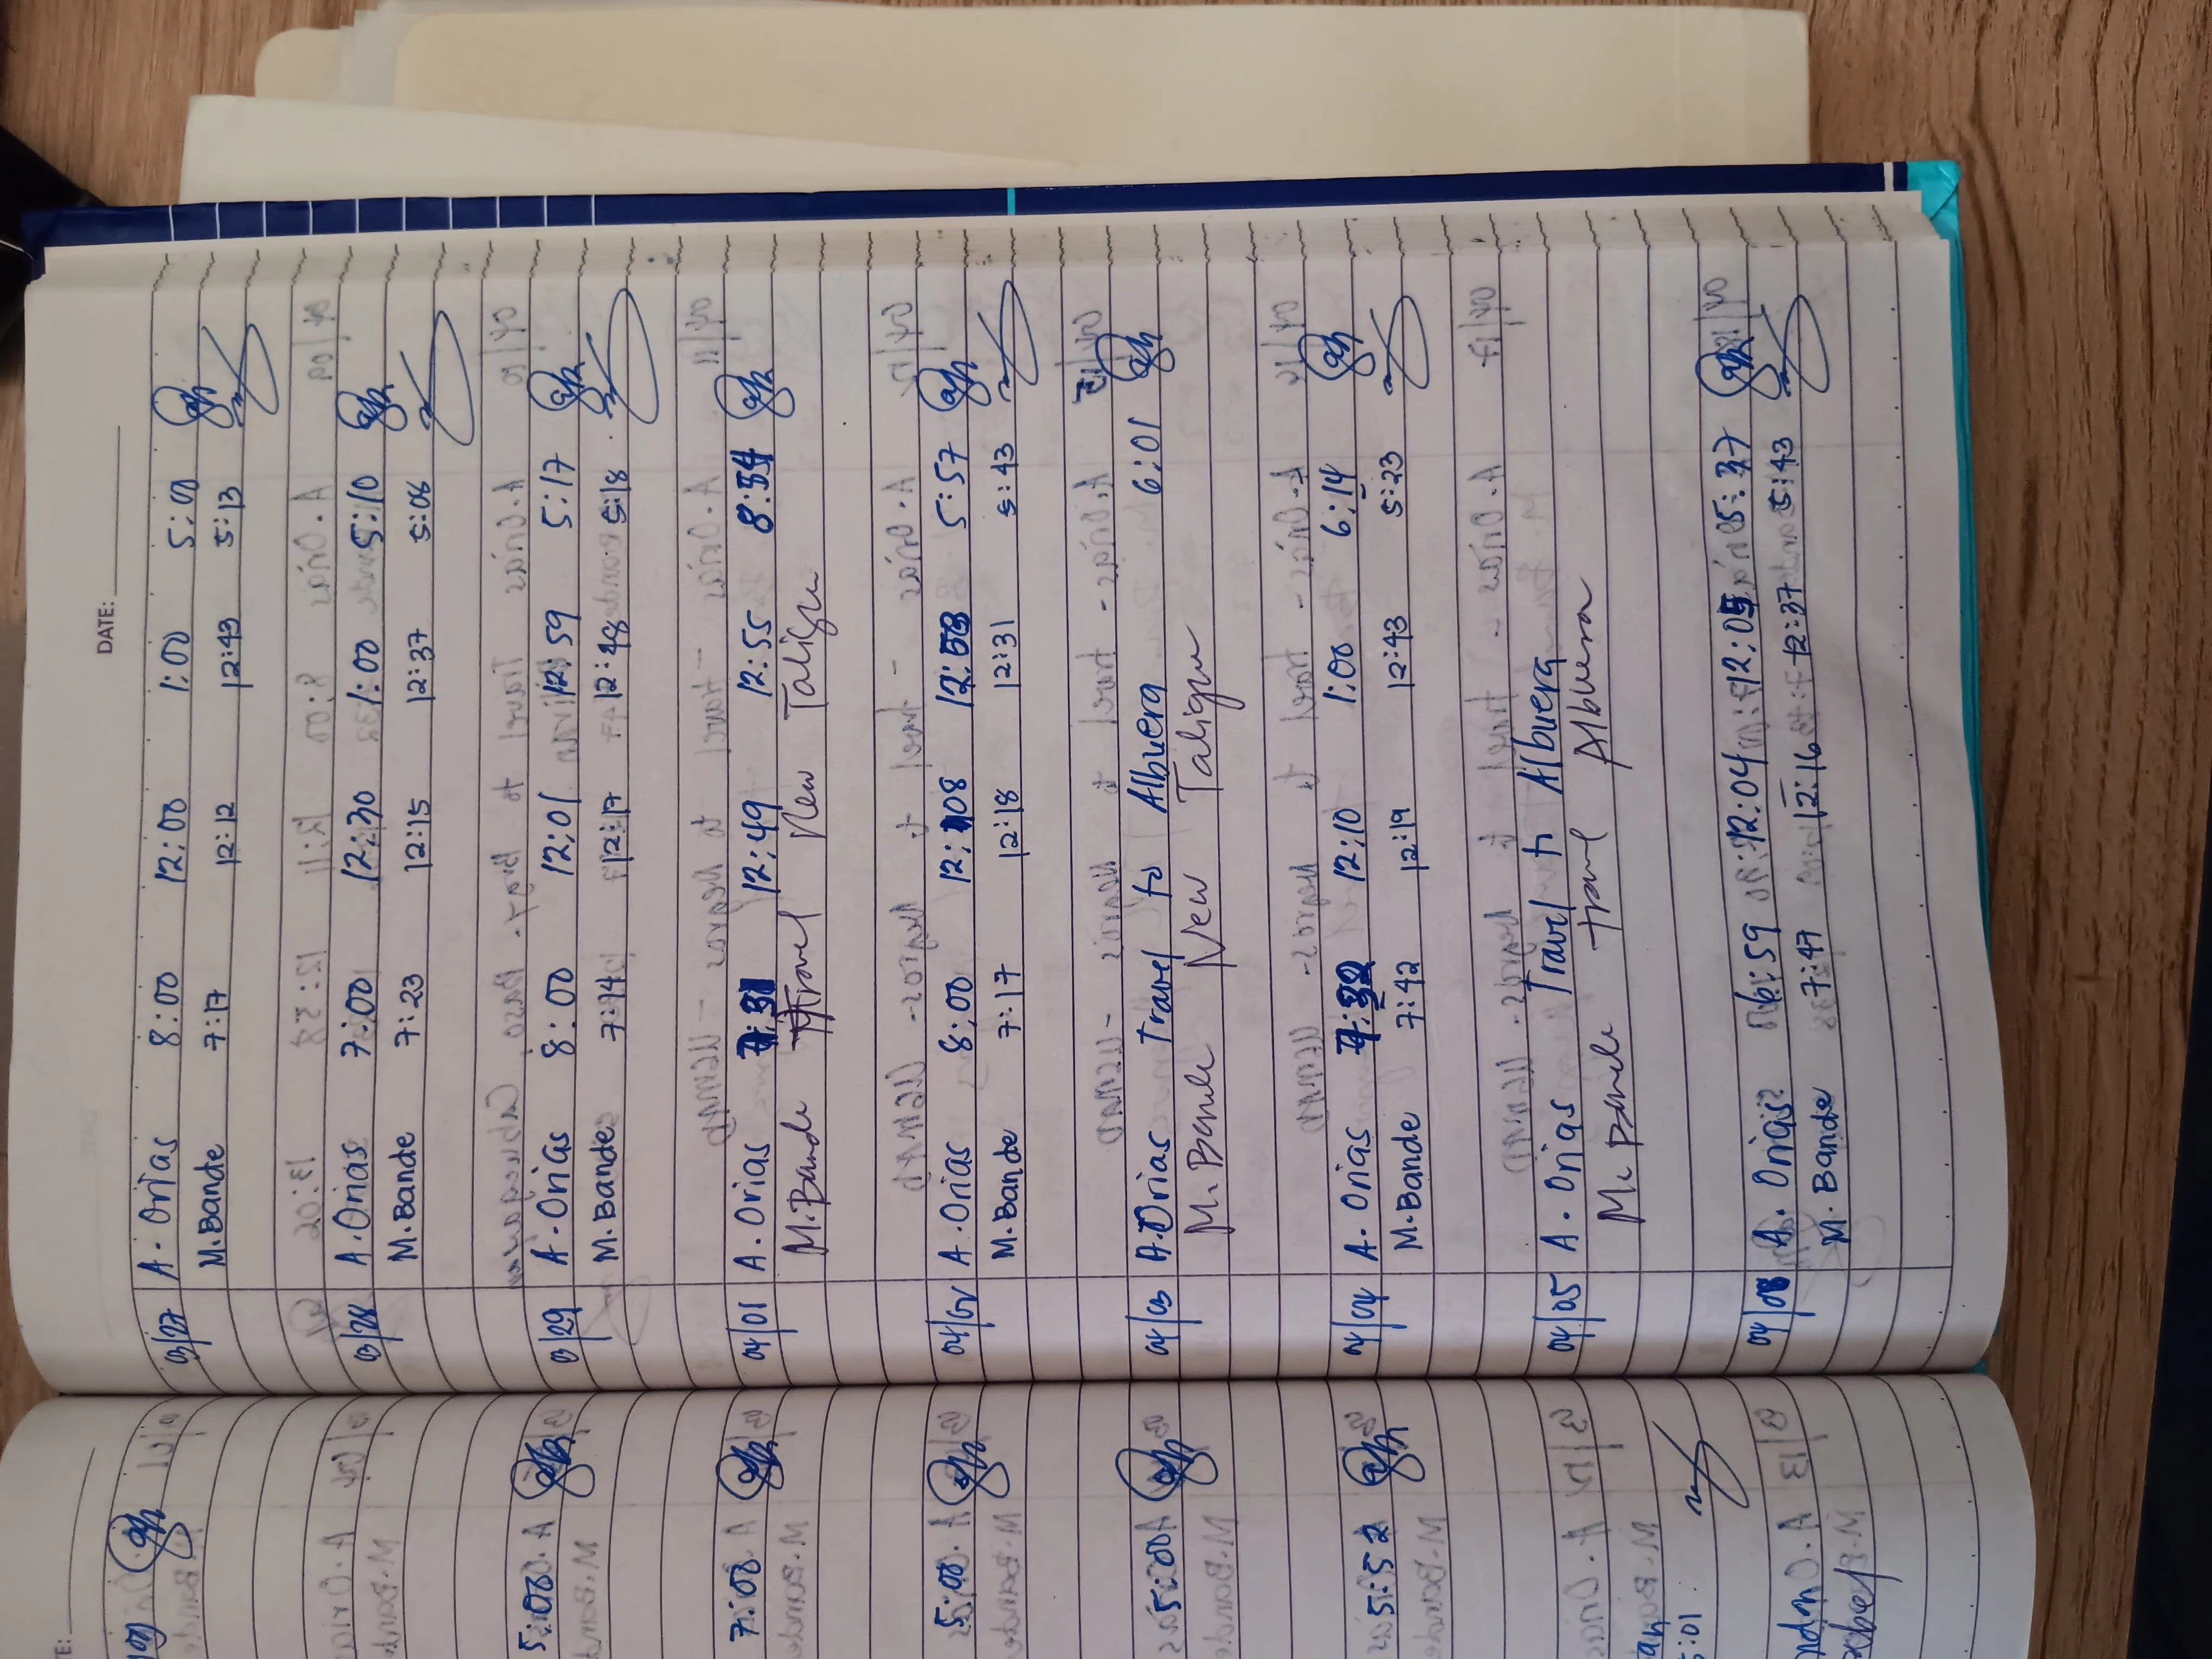 DATE:
03/27 A. Orias 8:00 12:00 1:00 5:00
M. Bande 7:17 12:12 12:43 5:13
03/28 A. Orias 7:00 12:30 1:00 5:10
M. Bande 7:23 12:15 12:37 5:06
03/29 A. Orias 8:00 12:01 12:59 5:17
M. Bande 7:44 12:17 12:48 5:18
04/01 A. Orias 12:49 12:55
M. Bande Travel New Taligue
04/02 A. Orias 8:00 12:08 5:57
M. Bande 7:17 12:18 12:31 5:43
04/03 A. Orias Travel to Albuera 6:01
M. Bande New Taligue
04/04 A. Orias 12:10 1:00 6:14
M. Bande 7:42 12:19 12:43 5:23
04/05 A. Orias Travel to Albuera
M. Bande Travel Albuera
04/08 A. Orias 6:59 12:04 12:05 5:37
M. Bande 7:47 12:16 12:37 5:43
5:00
7:00
5:00
5:00
5:52
5:01